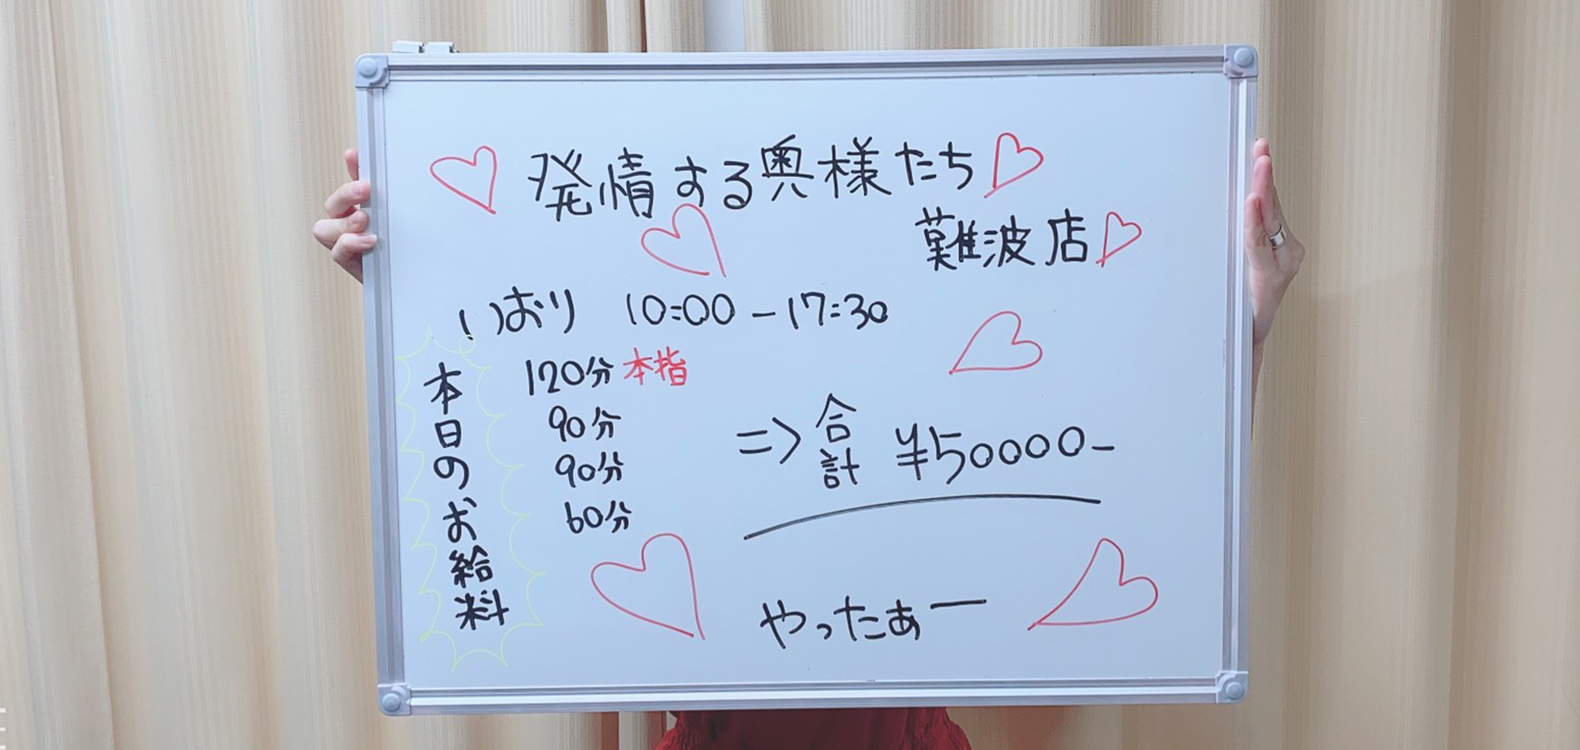 発情する奥様たち
難波店
いおり 10:00-17:30
本日のお給料
120分 本指
90分
90分
60分
=> 合計 ¥50000-
やったぁー